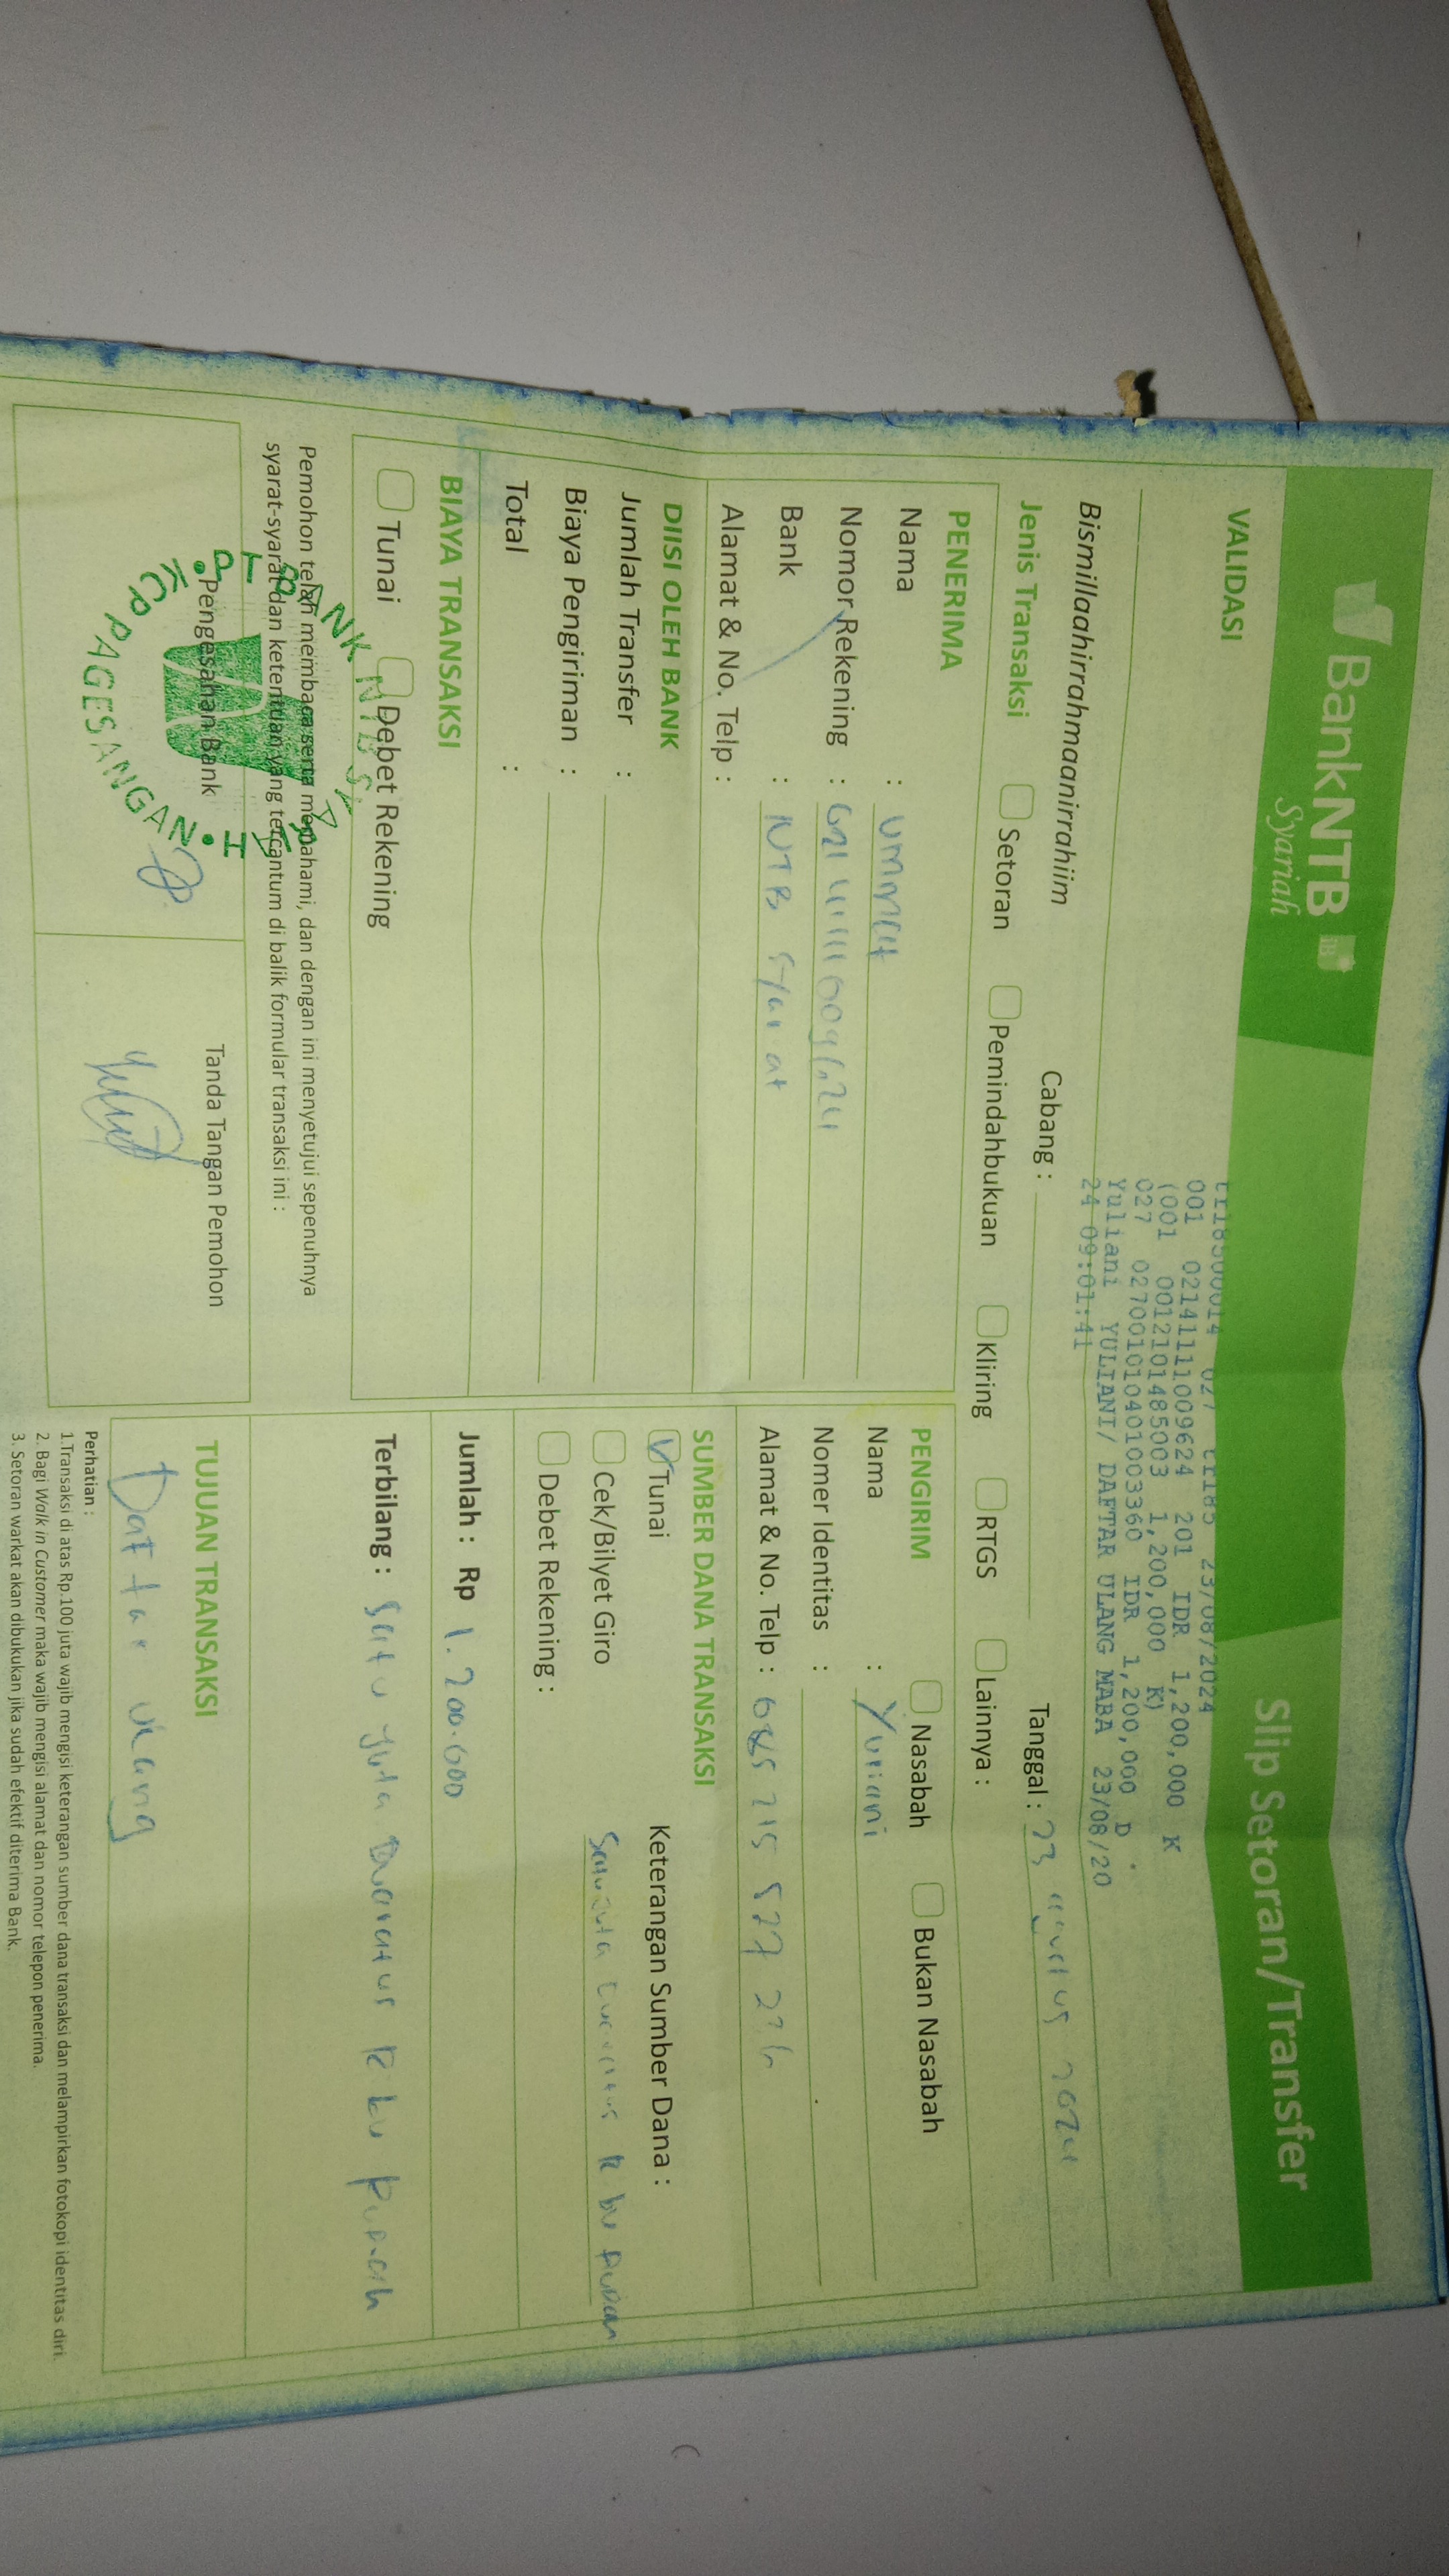 BankNTB iB
Syariah
Slip Setoran/Transfer
VALIDASI
tr18500014 027 tr185 23/08/2024
001 0214111009624 201 IDR 1,200,000 K
(001 0012101485003 1,200,000 K)
027 0270010104010033 60 IDR 1,200,000 D
Yuliani YULIANI/ DAFTAR ULANG MABA 23/08/20
24 09:01:41
Bismillaahirrahmaanirrahiim
Cabang :
Tanggal : 23 agustus 2024
Jenis Transaksi
Setoran
Pemindahbukuan
Kliring
RTGS
Lainnya :
PENERIMA
Nama : UMMAT
Nomor Rekening :
Bank : NTB Syariat
Alamat & No. Telp :
PENGIRIM
Nasabah
Bukan Nasabah
Nama : Yuliani
Nomer Identitas :
Alamat & No. Telp :
DIISI OLEH BANK
Jumlah Transfer :
Biaya Pengiriman :
Total :
SUMBER DANA TRANSAKSI
Tunai
Keterangan Sumber Dana :
Cek/Bilyet Giro
Debet Rekening :
BIAYA TRANSAKSI
Tunai
Debet Rekening
Jumlah : Rp 1.200.000
Terbilang : Satu juta duaratus ribu rupiah
Pemohon telah membaca serta memahami, dan dengan ini menyetujui sepenuhnya
syarat-syarat dan ketentuan yang tercantum di balik formular transaksi ini :
Pengesahan Bank
PT BANK NTB SYARIAH
KCP PAGESANGAN
Tanda Tangan Pemohon
TUJUAN TRANSAKSI
Daftar ulang
Perhatian :
1.Transaksi di atas Rp.100 juta wajib mengisi keterangan sumber dana transaksi dan melampirkan fotokopi identitas diri.
2. Bagi Walk in Customer maka wajib mengisi alamat dan nomor telepon penerima.
3. Setoran warkat akan dibukukan jika sudah efektif diterima Bank.